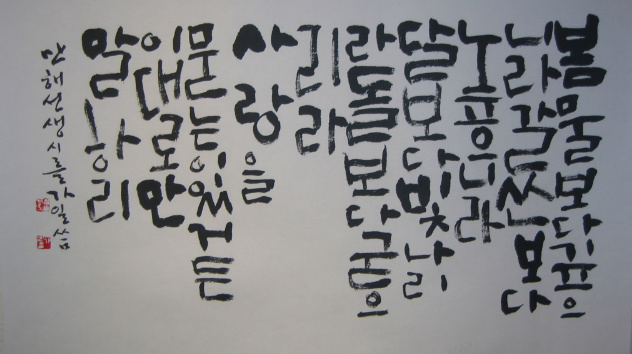 봄물보다깊으
니라갈산보다
높으니라
달보다빛나리
라돌보다굳으
리라
사랑을
묻는이있거든
이대로만
말하리
만해선생시를 가일 씀